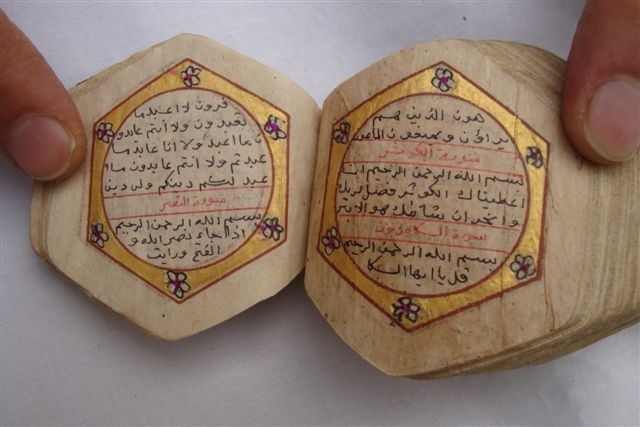 هون الذين هم
يراؤن ويمنعون الماعون
سورة الكوثر
بسم الله الرحمن الرحيم انا
اعطيناك الكوثر فصل لربك
وانحر ان شانئك هو الابتر
سورة الكافرون
بسم الله الرحمن الرحيم
قل يا ايها الكا
فرون لا اعبد ما
تعبدون ولا أنتم عابدو
ن ما اعبد ولا انا عابد ما
عبدتم ولا انتم عابدون ما ا
عبد لكم دينكم ولي دين
سورة النصر
بسم الله الرحمن الرحيم
اذا جاء نصر الله و
الفتح ورايت